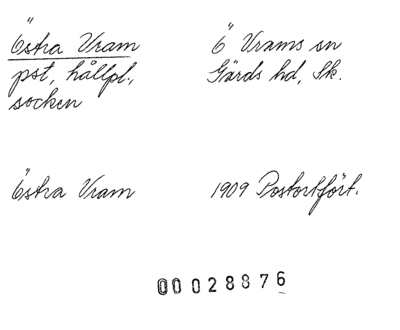 Östra Vram
pst, hållpl.,
socken
Ö Vrams sn
Gärds hd, Sk.
Östra Vram
1909 Postortfört.
00028876